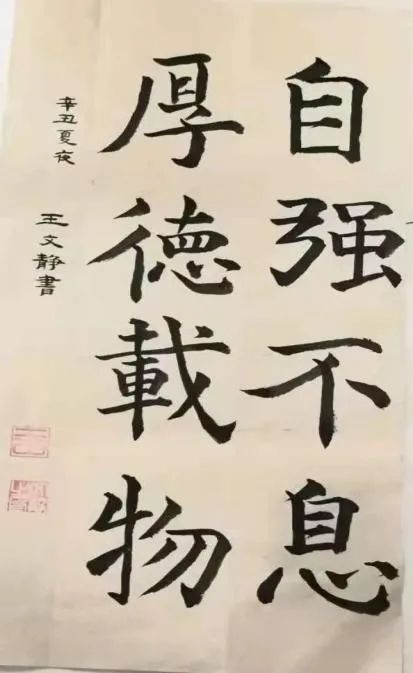 自强不息
厚德載物
辛丑夏夜
王文静書